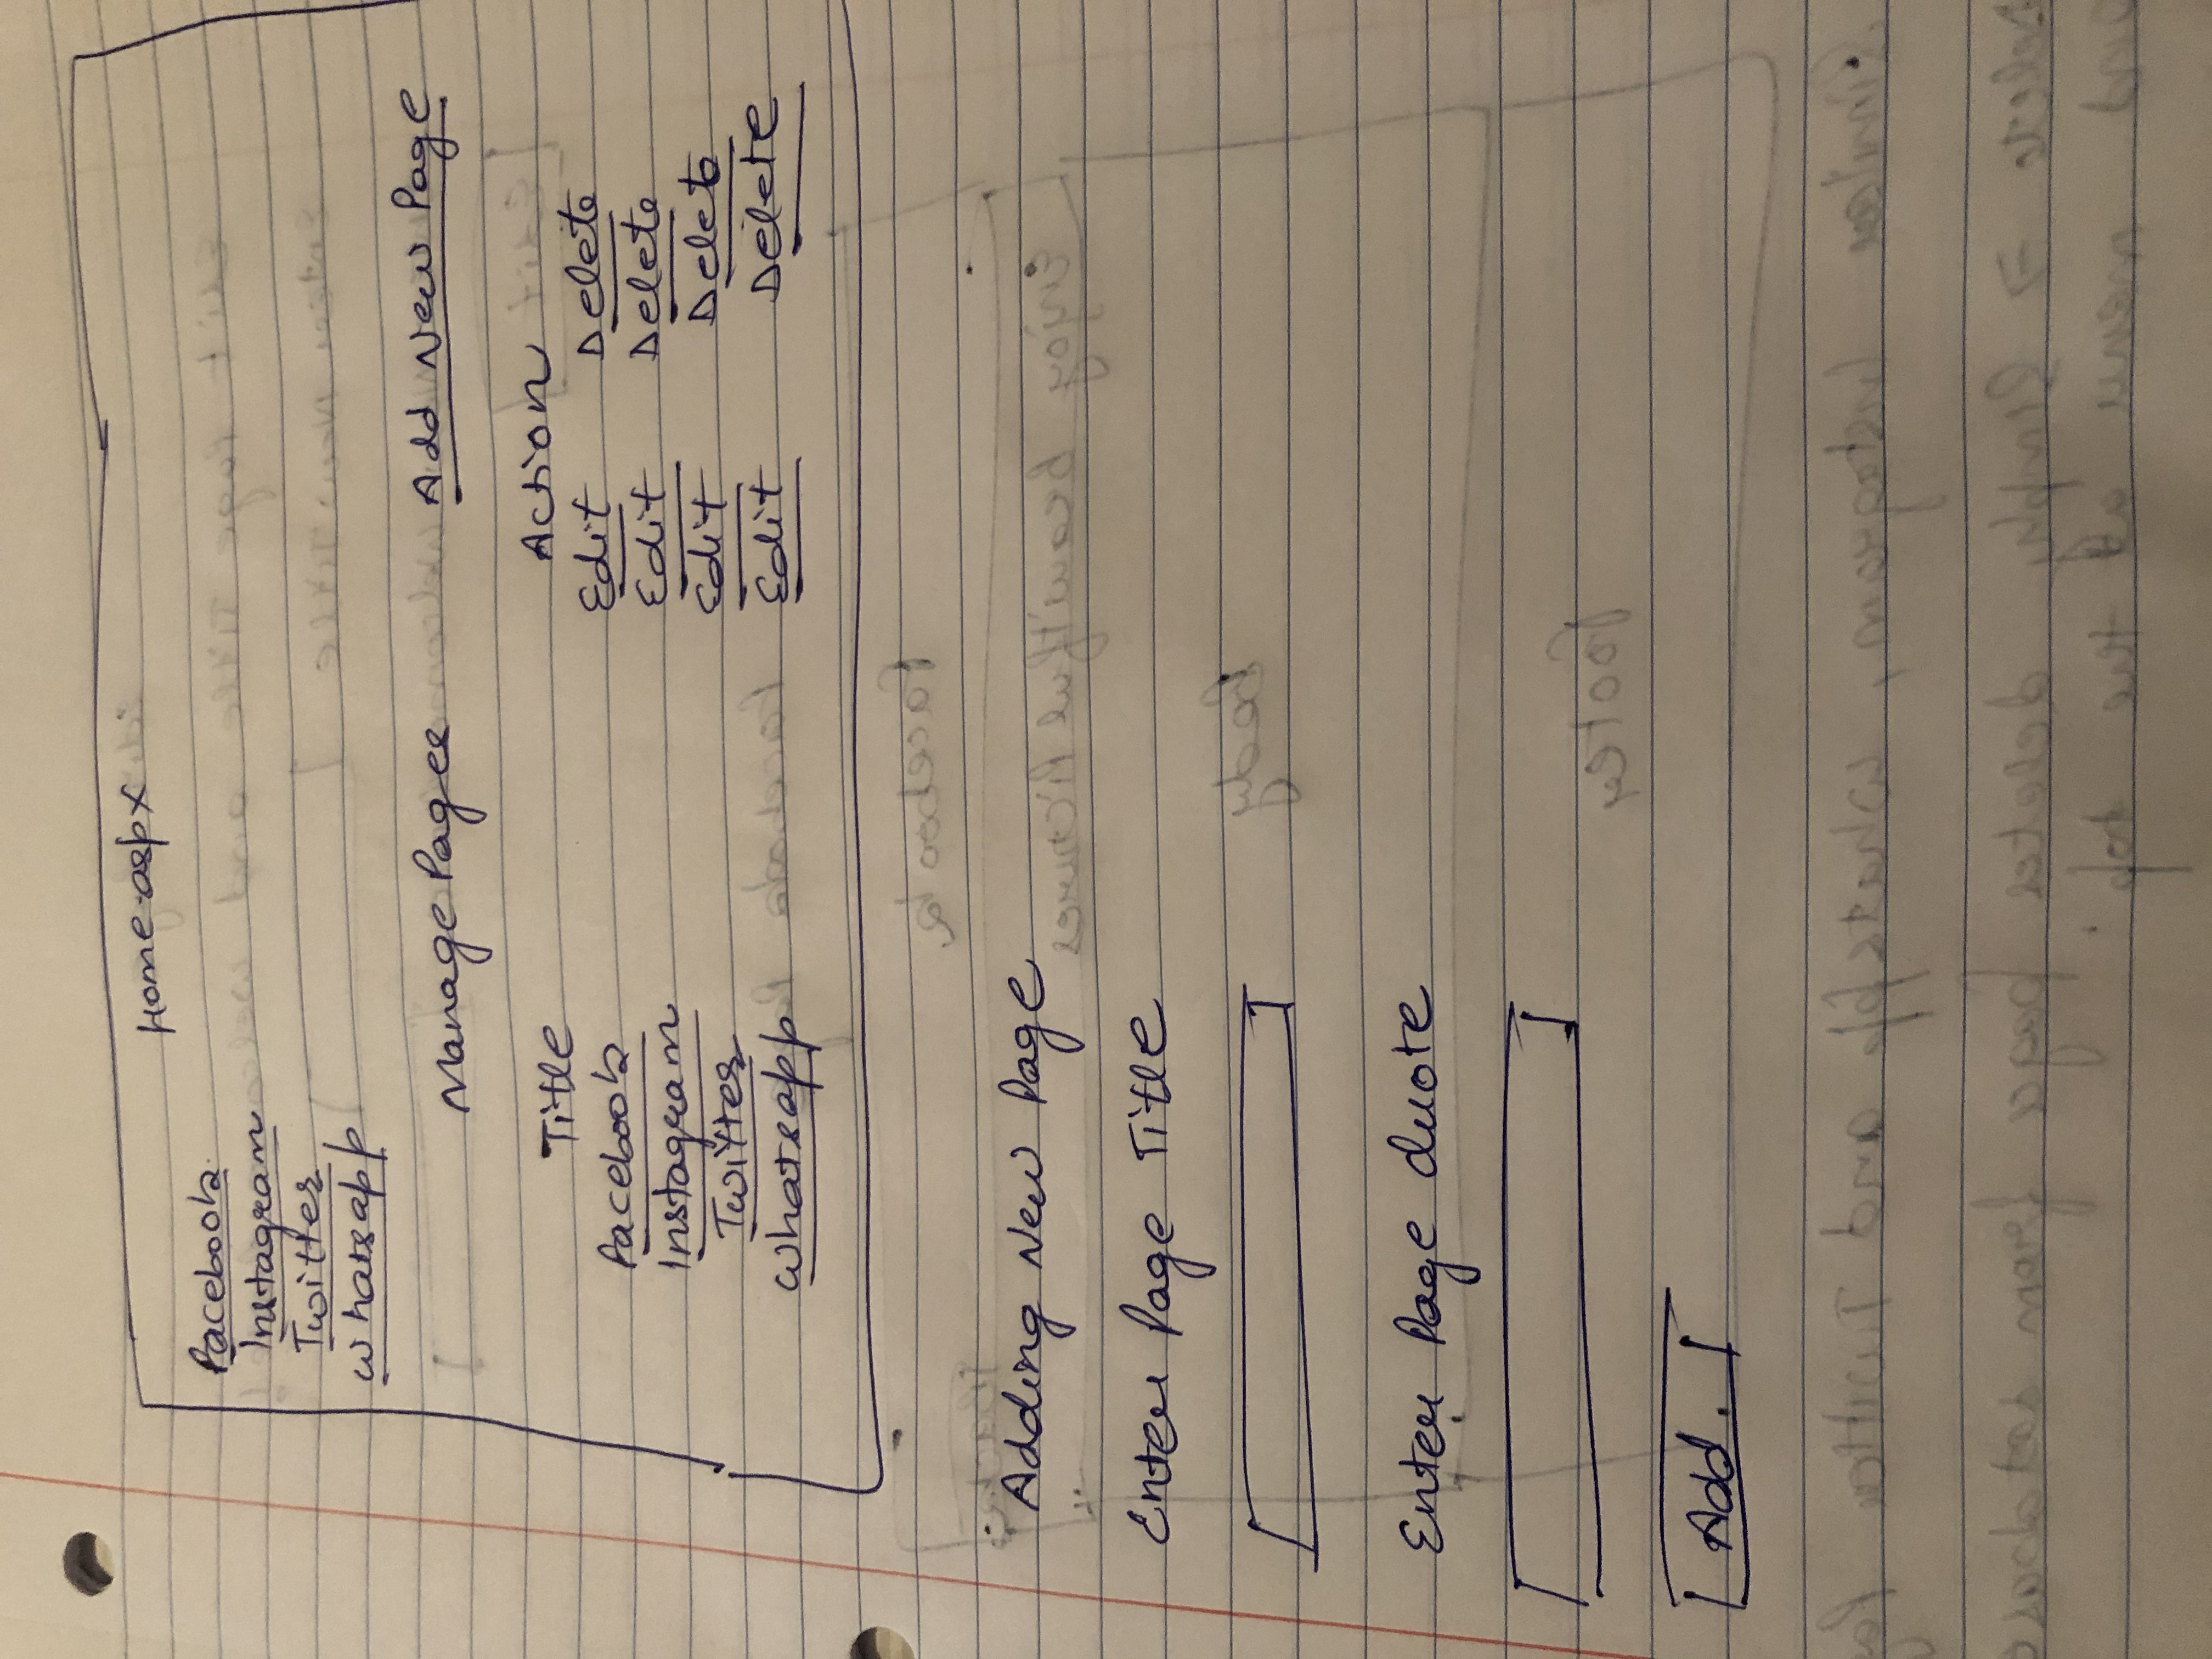 Home.aspx
Facebook
Instagram
Twitter
Whatsapp
Manage Pages Add New Page
Title Action
Facebook Edit Delete
Instagram Edit Delete
Twitter Edit Delete
Whatsapp Edit Delete
Adding New Page
Enter Page Title
Enter Page Quote
Add